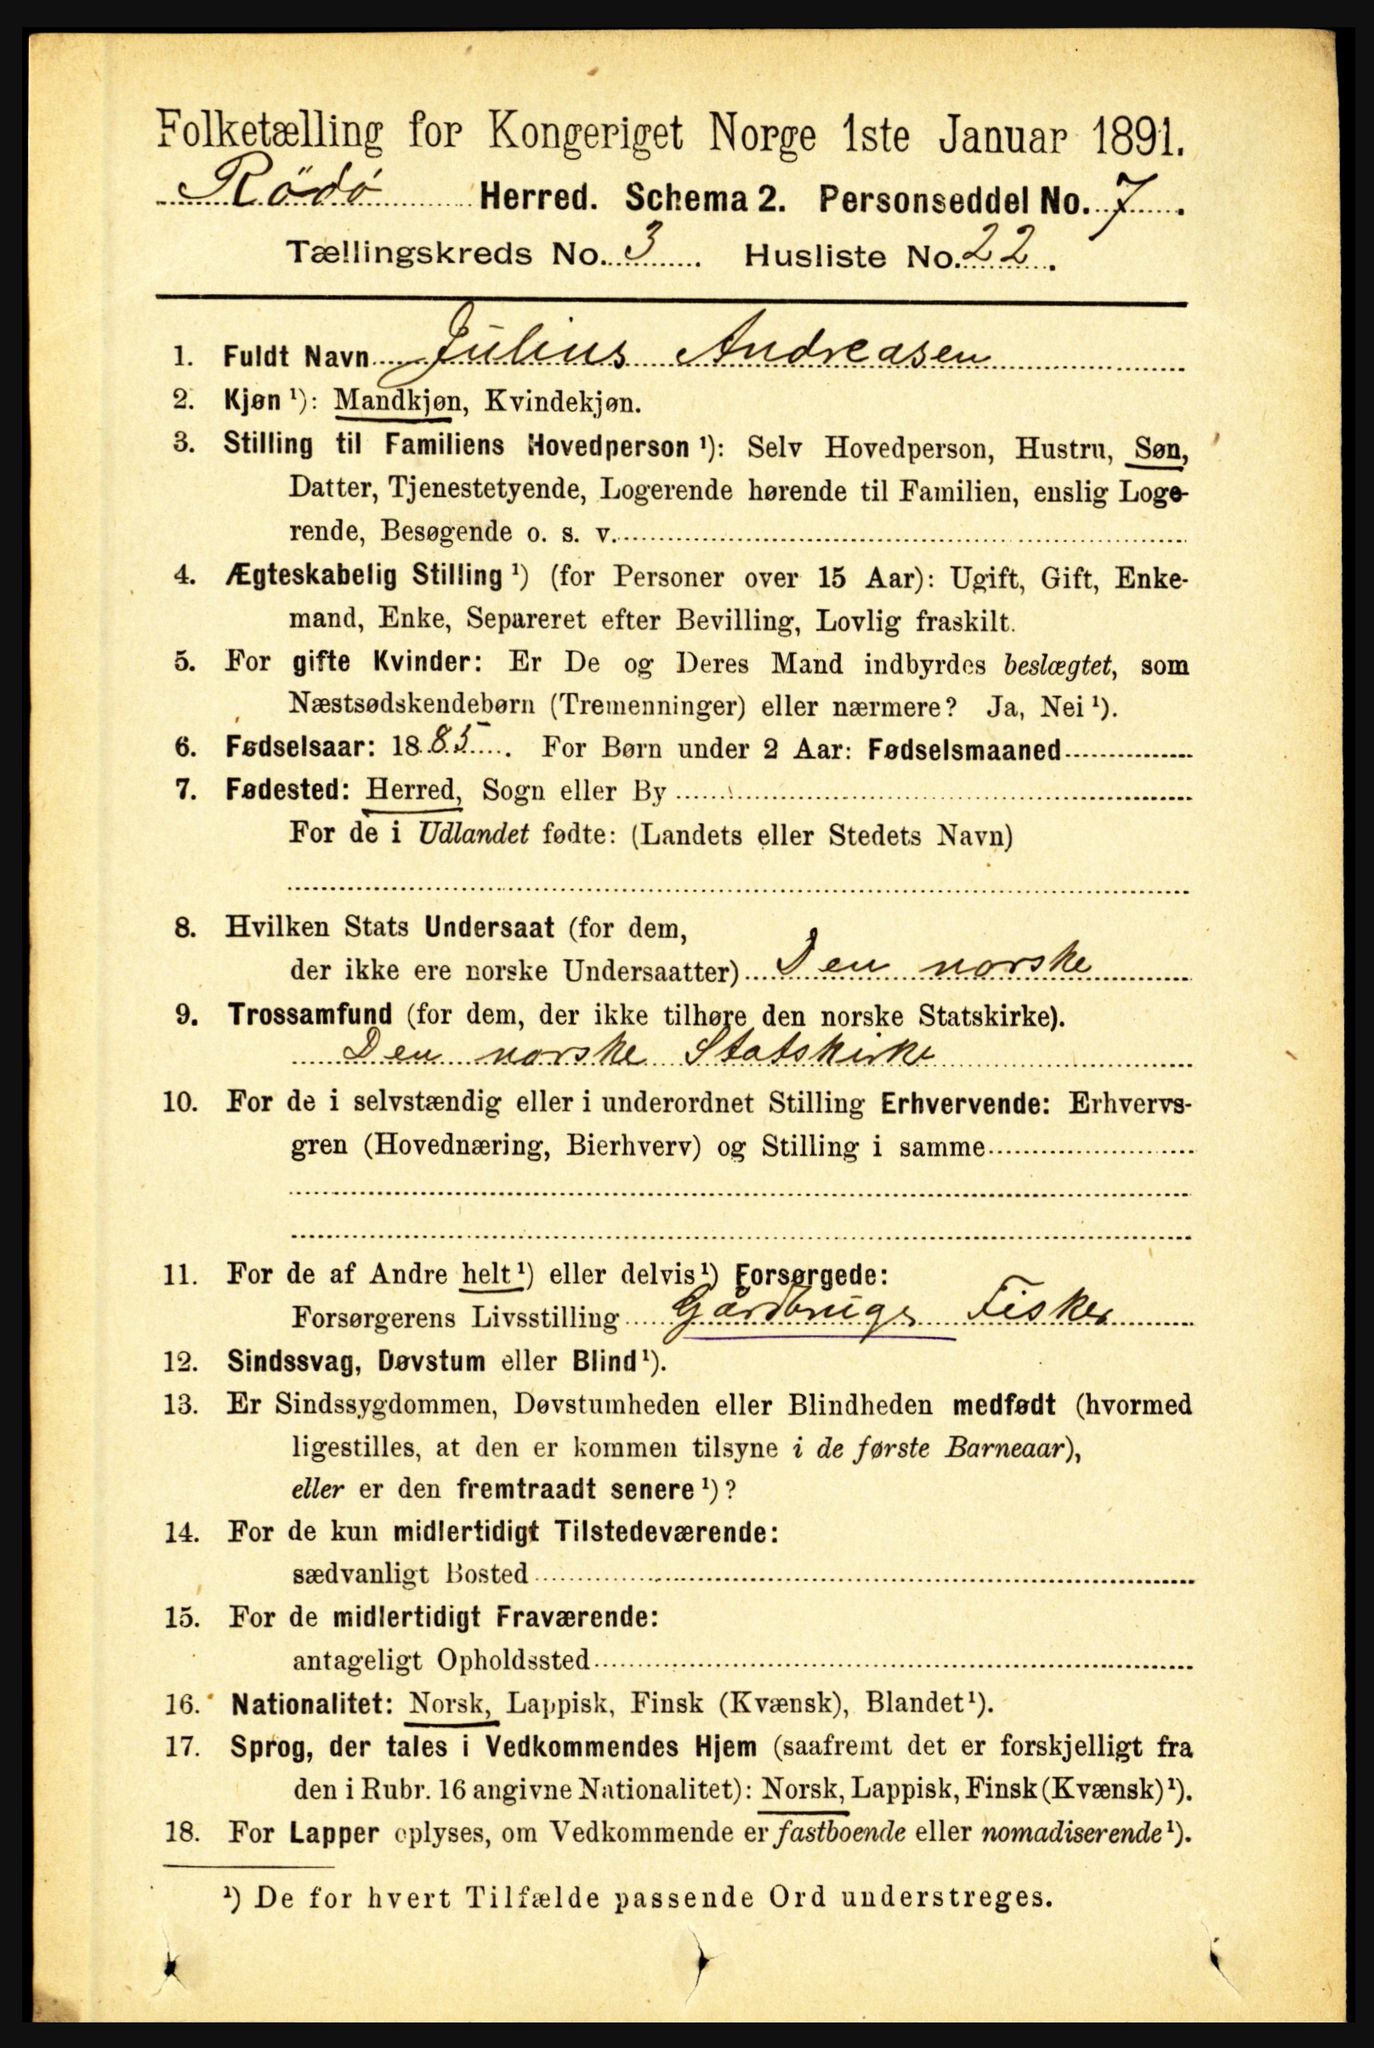 Folketælling for Kongeriget Norge 1ste Januar 1891.
Rödö Herred. Schema 2. Personseddel No. 7.
Tællingskreds No. 3. Husliste No. 22.
1. Fuldt Navn Julius Andreasen
2. Kjøn ¹): Mandkjøn, Kvindekjøn.
3. Stilling til Familiens Hovedperson ¹): Selv Hovedperson, Hustru, Søn,
Datter, Tjenestetyende, Logerende hørende til Familien, enslig Loge-
rende, Besøgende o. s. v.
4. Ægteskabelig Stilling ¹) (for Personer over 15 Aar): Ugift, Gift, Enke-
mand, Enke, Separeret efter Bevilling, Lovlig fraskilt.
5. For gifte Kvinder: Er De og Deres Mand indbyrdes beslægtet, som
Næstsødskendebørn (Tremenninger) eller nærmere? Ja, Nei ¹).
6. Fødselsaar: 1885. For Børn under 2 Aar: Fødselsmaaned
7. Fødested: Herred, Sogn eller By
For de i Udlandet fødte: (Landets eller Stedets Navn)
8. Hvilken Stats Undersaat (for dem,
der ikke ere norske Undersaatter) Den norske
9. Trossamfund (for dem, der ikke tilhøre den norske Statskirke).
Den norske Statskirke
10. For de i selvstændig eller i underordnet Stilling Erhvervende: Erhvervs-
gren (Hovednæring, Bierhverv) og Stilling i samme
11. For de af Andre helt ¹) eller delvis ¹) Forsørgede:
Forsørgerens Livsstilling Gårdbruger Fisker
12. Sindssvag, Døvstum eller Blind ¹).
13. Er Sindssygdommen, Døvstumheden eller Blindheden medfødt (hvormed
ligestilles, at den er kommen tilsyne i de første Barneaar),
eller er den fremtraadt senere ¹)?
14. For de kun midlertidigt Tilstedeværende:
sædvanligt Bosted
15. For de midlertidigt Fraværende:
antageligt Opholdssted
16. Nationalitet: Norsk, Lappisk, Finsk (Kvænsk), Blandet ¹).
17. Sprog, der tales i Vedkommendes Hjem (saafremt det er forskjelligt fra
den i Rubr. 16 angivne Nationalitet): Norsk, Lappisk, Finsk (Kvænsk) ¹).
18. For Lapper oplyses, om Vedkommende er fastboende eller nomadiserende ¹).
¹) De for hvert Tilfælde passende Ord understreges.